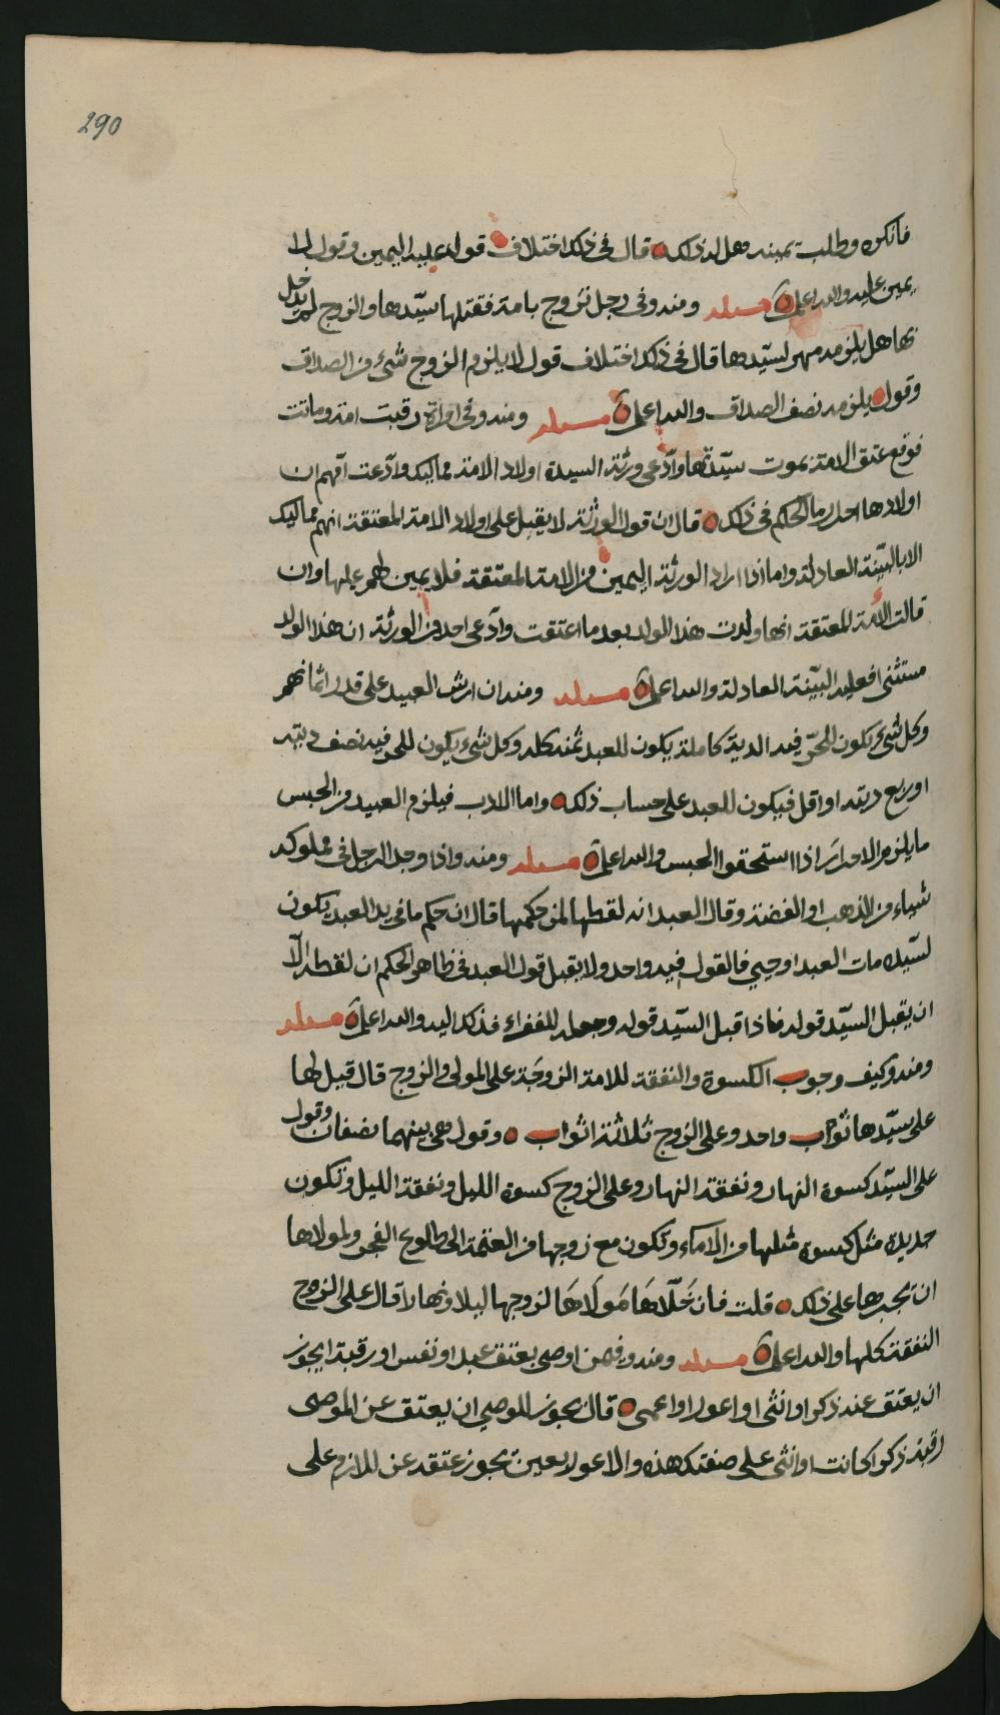 290
فانكره وطلب يمينه هل له ذلك قال في ذلك اختلاف قول عليه اليمين وقول لا
يمين عليه والله اعلم مسئلة ومنه وفي رجل تزوج بامة فقتلها سيّدها والزوج لم يدخل
بها هل يلزمه مهر لسيّدها قال في ذلك اختلاف قول لا يلزم الزوج شيء من الصداق
وقول يلزمه نصف الصداق والله اعلم مسئلة ومنه وفي امراة رقبت امة وماتت
فوقع عتق الامة بموت سيّدتها وادّعى ورثة السيدة اولاد الامة مماليك وادّعت امّهم ان
اولادها احرار ما الحكم في ذلك قال ان قول الورثة لا يقبل على اولاد الامة المعتقة انهم مماليك
الا بالبيّنة العادلة واما اذا اراد الورثة اليمين من الامة المعتقة فلا يمين لهم عليها وان
قالت الأمة المعتقة انها ولدت هذا الولد بعد ما اعتقت وادّعى احد من الورثة ان هذا الولد
مستثنى فعليه البيّنة العادلة والله اعلم مسئلة ومنه ان ارش العبيد على قدر اثمانهم
وكل شيء يكون للحرّ فيه الدية كاملة يكون للعبد ثمنه كله وكل شيء يكون للحر فيه نصف ديته
او ربع ديته او اقل فيكون للعبد على حساب ذلك واما الادب فيلزم العبيد من الحبس
ما يلزم الاحرار اذا استحقوا الحبس والله اعلم مسئلة ومنه واذا وجد الرجل في مملوكه
شياء من الذهب او الفضة وقال العبد انه لقطها لمن حكمها قال ان حكم ما في يد العبد يكون
لسيّده مات العبد او حيي فالقول فيه واحد ولا يقبل قول العبد في ظاهر الحكم ان لقطه الّا
ان يقبل السيّد قوله فاذا قبل السيّد قوله وجعله للفقراء فذلك اليه والله اعلم مسئلة
ومنه وكيف وجوب الكسوة والنفقة للامة الزوجة على المولى والزوج قال قيل لها
على سيّدها ثواب واحد وعلى الزوج ثلاثة اثواب وقول هي بينهما نصفان وقول
على السيّد كسوة النهار ونفقة النهار وعلى الزوج كسوة الليل ونفقة الليل وتكون
جديدة مثل كسوة مثلها من الاماء وتكون مع زوجها من العتمة الى طلوع الفجر ولمولاها
ان يجبرها على ذلك قلت فان خلّاها مولاها لزوجها ليلا ونهارا قال على الزوج
النفقة كلها والله اعلم مسئلة ومنه وفيمن اوصى بعتق عبد او نفس او رقبة ايجوز
ان يعتق عنه ذكر او انثى او اعور او اعمى قال يجوز للوصي ان يعتق عن الموصى
رقبة ذكرا كانت او انثى على صفتك هذه والاعور بعين يجوز عتقه عن للازم على